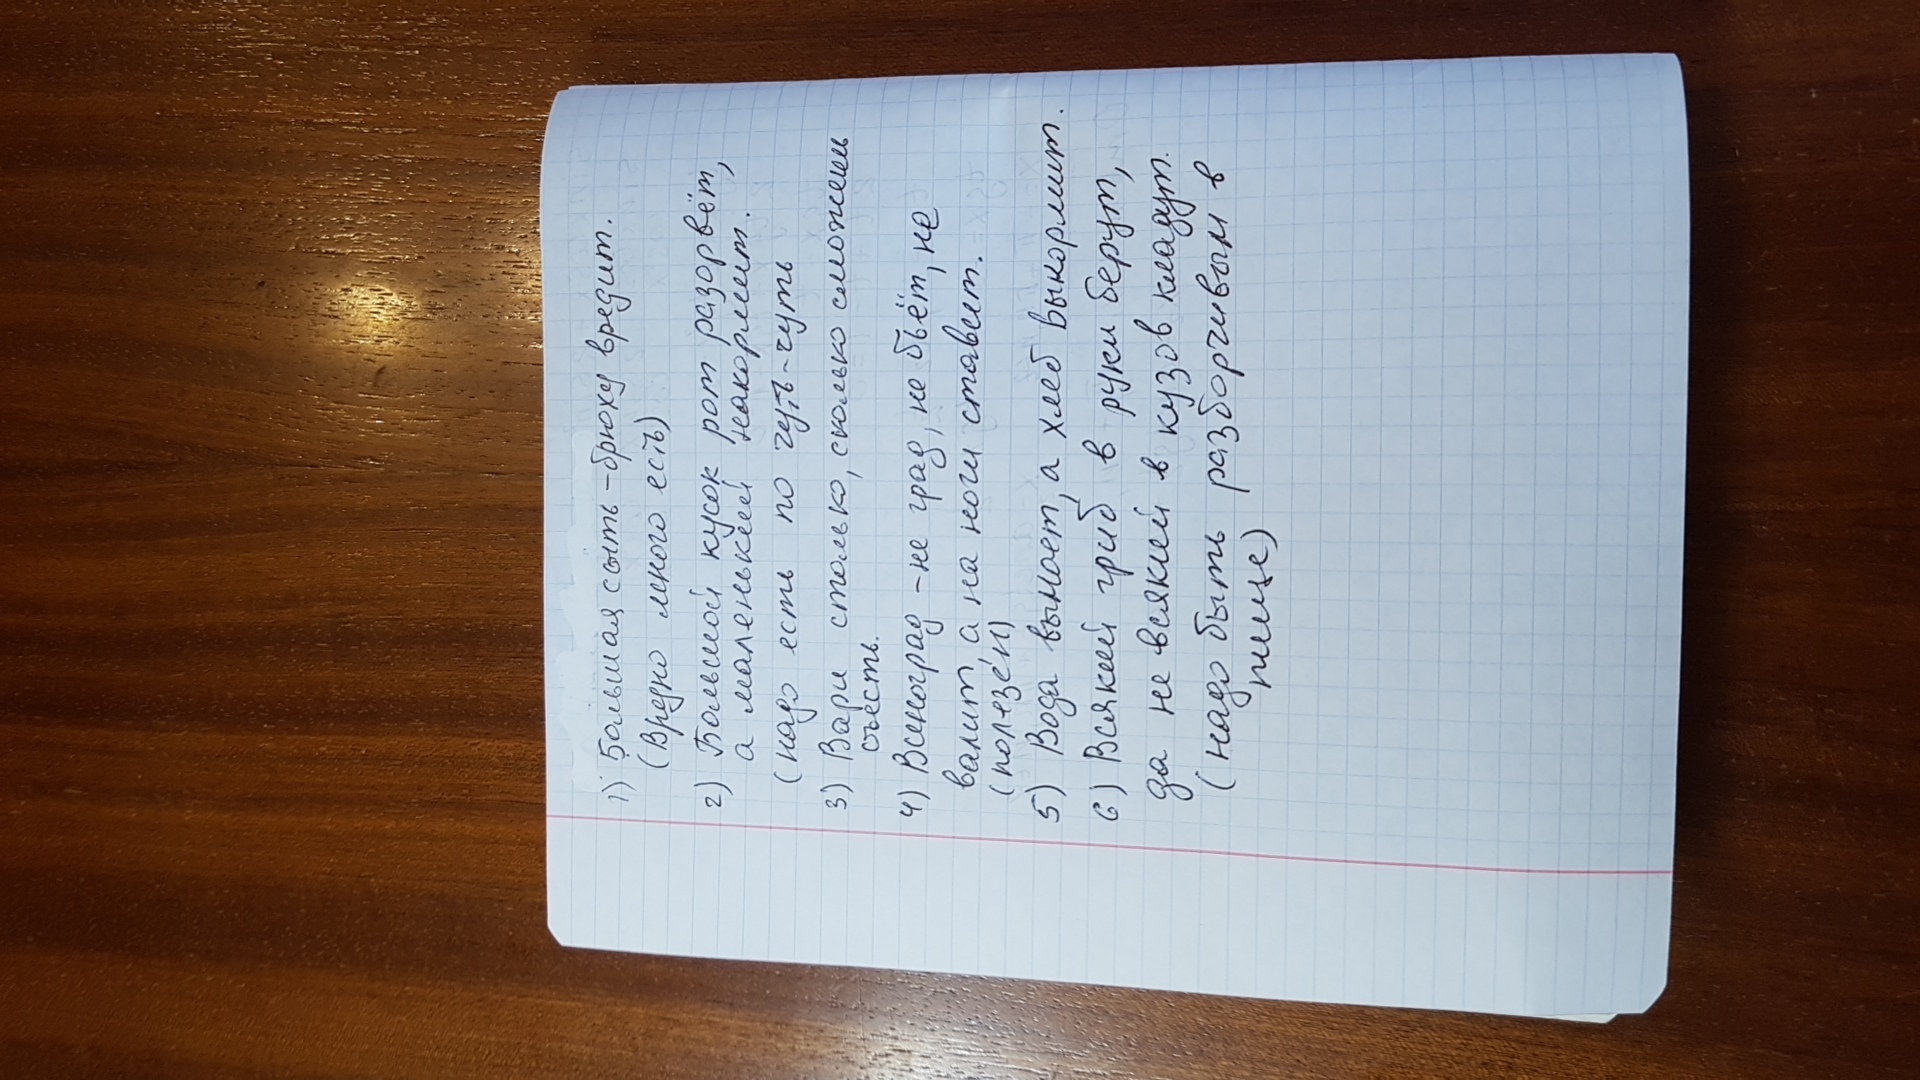 1) Большая сыть - брюху вредит.
(Вредно много есть)
2) Большой кусок рот разорвёт,
а маленький накормит.
(надо есть по чуть-чуть
3) Вари столько, сколько сможешь
съесть.
4) Виноград - не град, не бьёт, не
валит, а на ноги ставит.
(полезен)
5) Вода вымоет, а хлеб выкормит.
6) Всякий гриб в руки берут,
да не всякий в кузов кладут.
(надо быть разборчивым в
пище)